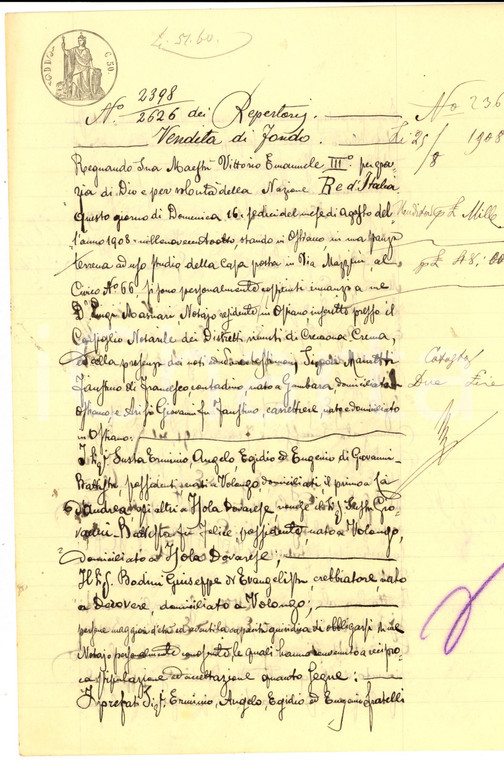 L. 51.60
C. 50
N.° 2398
2626 dei Repertorj
No 236
Vendita di Fondo
Li 25/8 1908
Regnando Sua Maestà Vittorio Emanuele III° per gra-
zia di Dio e per volontà della Nazione Re d'Italia
Questo giorno di Domenica 16. sedici del mese di Agosto del
Mille
l'anno 1908. millenovecentootto, stando in Ostiano in una stanza
terrena ad uso studio della Casa posta in Via Mazzini, al
48:00
Civico N° 66. si sono personalmente costituiti innanzi a me
Dr Luigi Masnari Notajo residente in Ostiano inscritto presso il
Consiglio Notarile dei Distretti riuniti di Cremona Crema,
ed alla presenza dei noti testimonj Signori
Catasto
Faustino di Francesco contadino nato a Gambara domiciliato
Due Lire
Ostiano e Giovanni fu Faustino, carrettiere nato e domiciliato
in Ostiano.
I Sigg. Susta Erminio, Angelo, Egidio ed Eugenio di Giovanni
Battista, possidenti nati a Volongo domiciliati il primo a Cà
d'Andrea gli altri a Isola Dovarese nonchè il Sig. Susta Gio-
vanni Battista fu Felice, possidente, nato a Volongo,
domiciliato ad Isola Dovarese,
Il Sig. Bodini Giuseppe di Evangelista trebbiatore, nato
a Derovere, domiciliato a Volongo,
persone maggiori d'età ed capacità giuridica di obbligarsi
Notajo personalmente le quali hanno a recipro-
ca stipulazione ed accettazione quanto segue:
I prefati Sigg. Erminio, Angelo, Egidio ed Eugenio fratelli